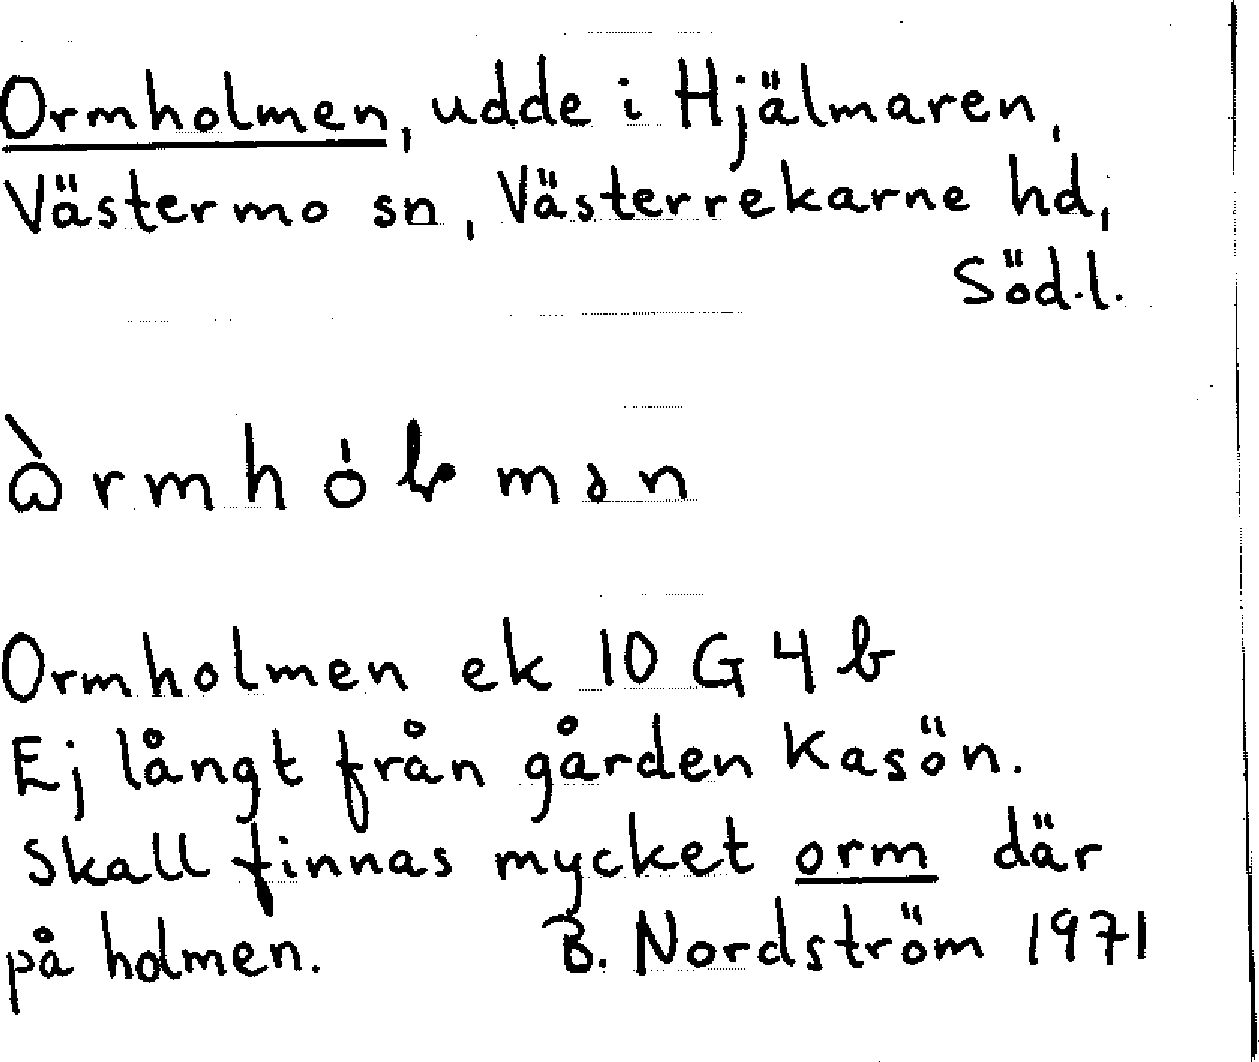 Ormholmen, udde i Hjälmaren,
Västermo sn, Västerrekarne hd,
Söd.l.
Ormholmen ek 10 G 4 b
Ej långt från gården Kasön.
Skall finnas mycket orm där
på holmen. B. Nordström 1971